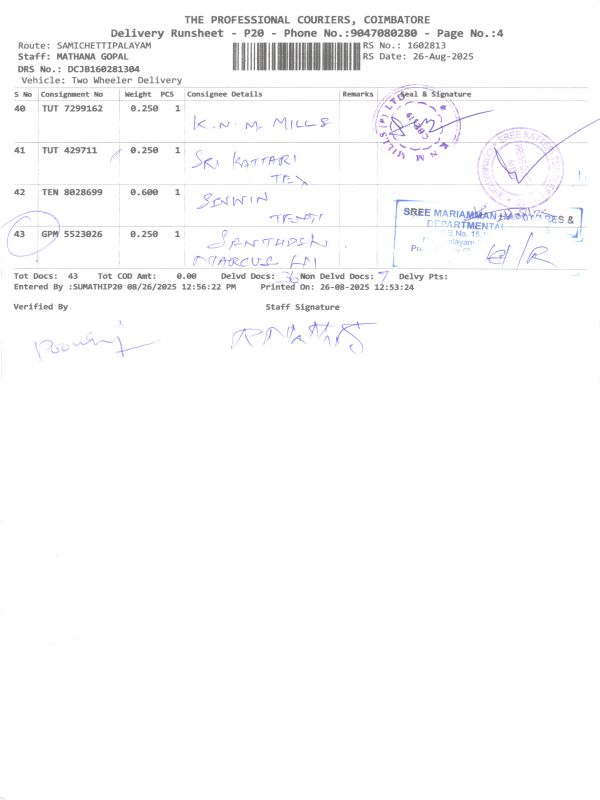 THE PROFESSIONAL COURIERS, COIMBATORE
Delivery Runsheet - P20 - Phone No.:9047080280 - Page No.:4
Route: SAMICHETTIPALAYAM
RS No.: 1602813
Staff: MATHANA GOPAL
RS Date: 26-Aug-2025
DRS No.: DCJB160281304
Vehicle: Two Wheeler Delivery
S No Consignment No Weight PCS Consignee Details Remarks Seal & Signature
40 TUT 7299162 0.250 1 K.N.M. MILLS
K N M MILLS (P) LTD
41 TUT 429711 0.250 1 SRI KATTARI
TEX
42 TEN 8028699 0.600 1
SREE MARIAMMAN
DEPARTMENTAL
43 GPM 5523026 0.250 1
Tot Docs: 43 Tot COD Amt: 0.00 Delvd Docs: 36 Non Delvd Docs: 7 Delvy Pts:
Entered By :SUMATHIP20 08/26/2025 12:56:22 PM Printed On: 26-08-2025 12:53:24
Verified By Staff Signature